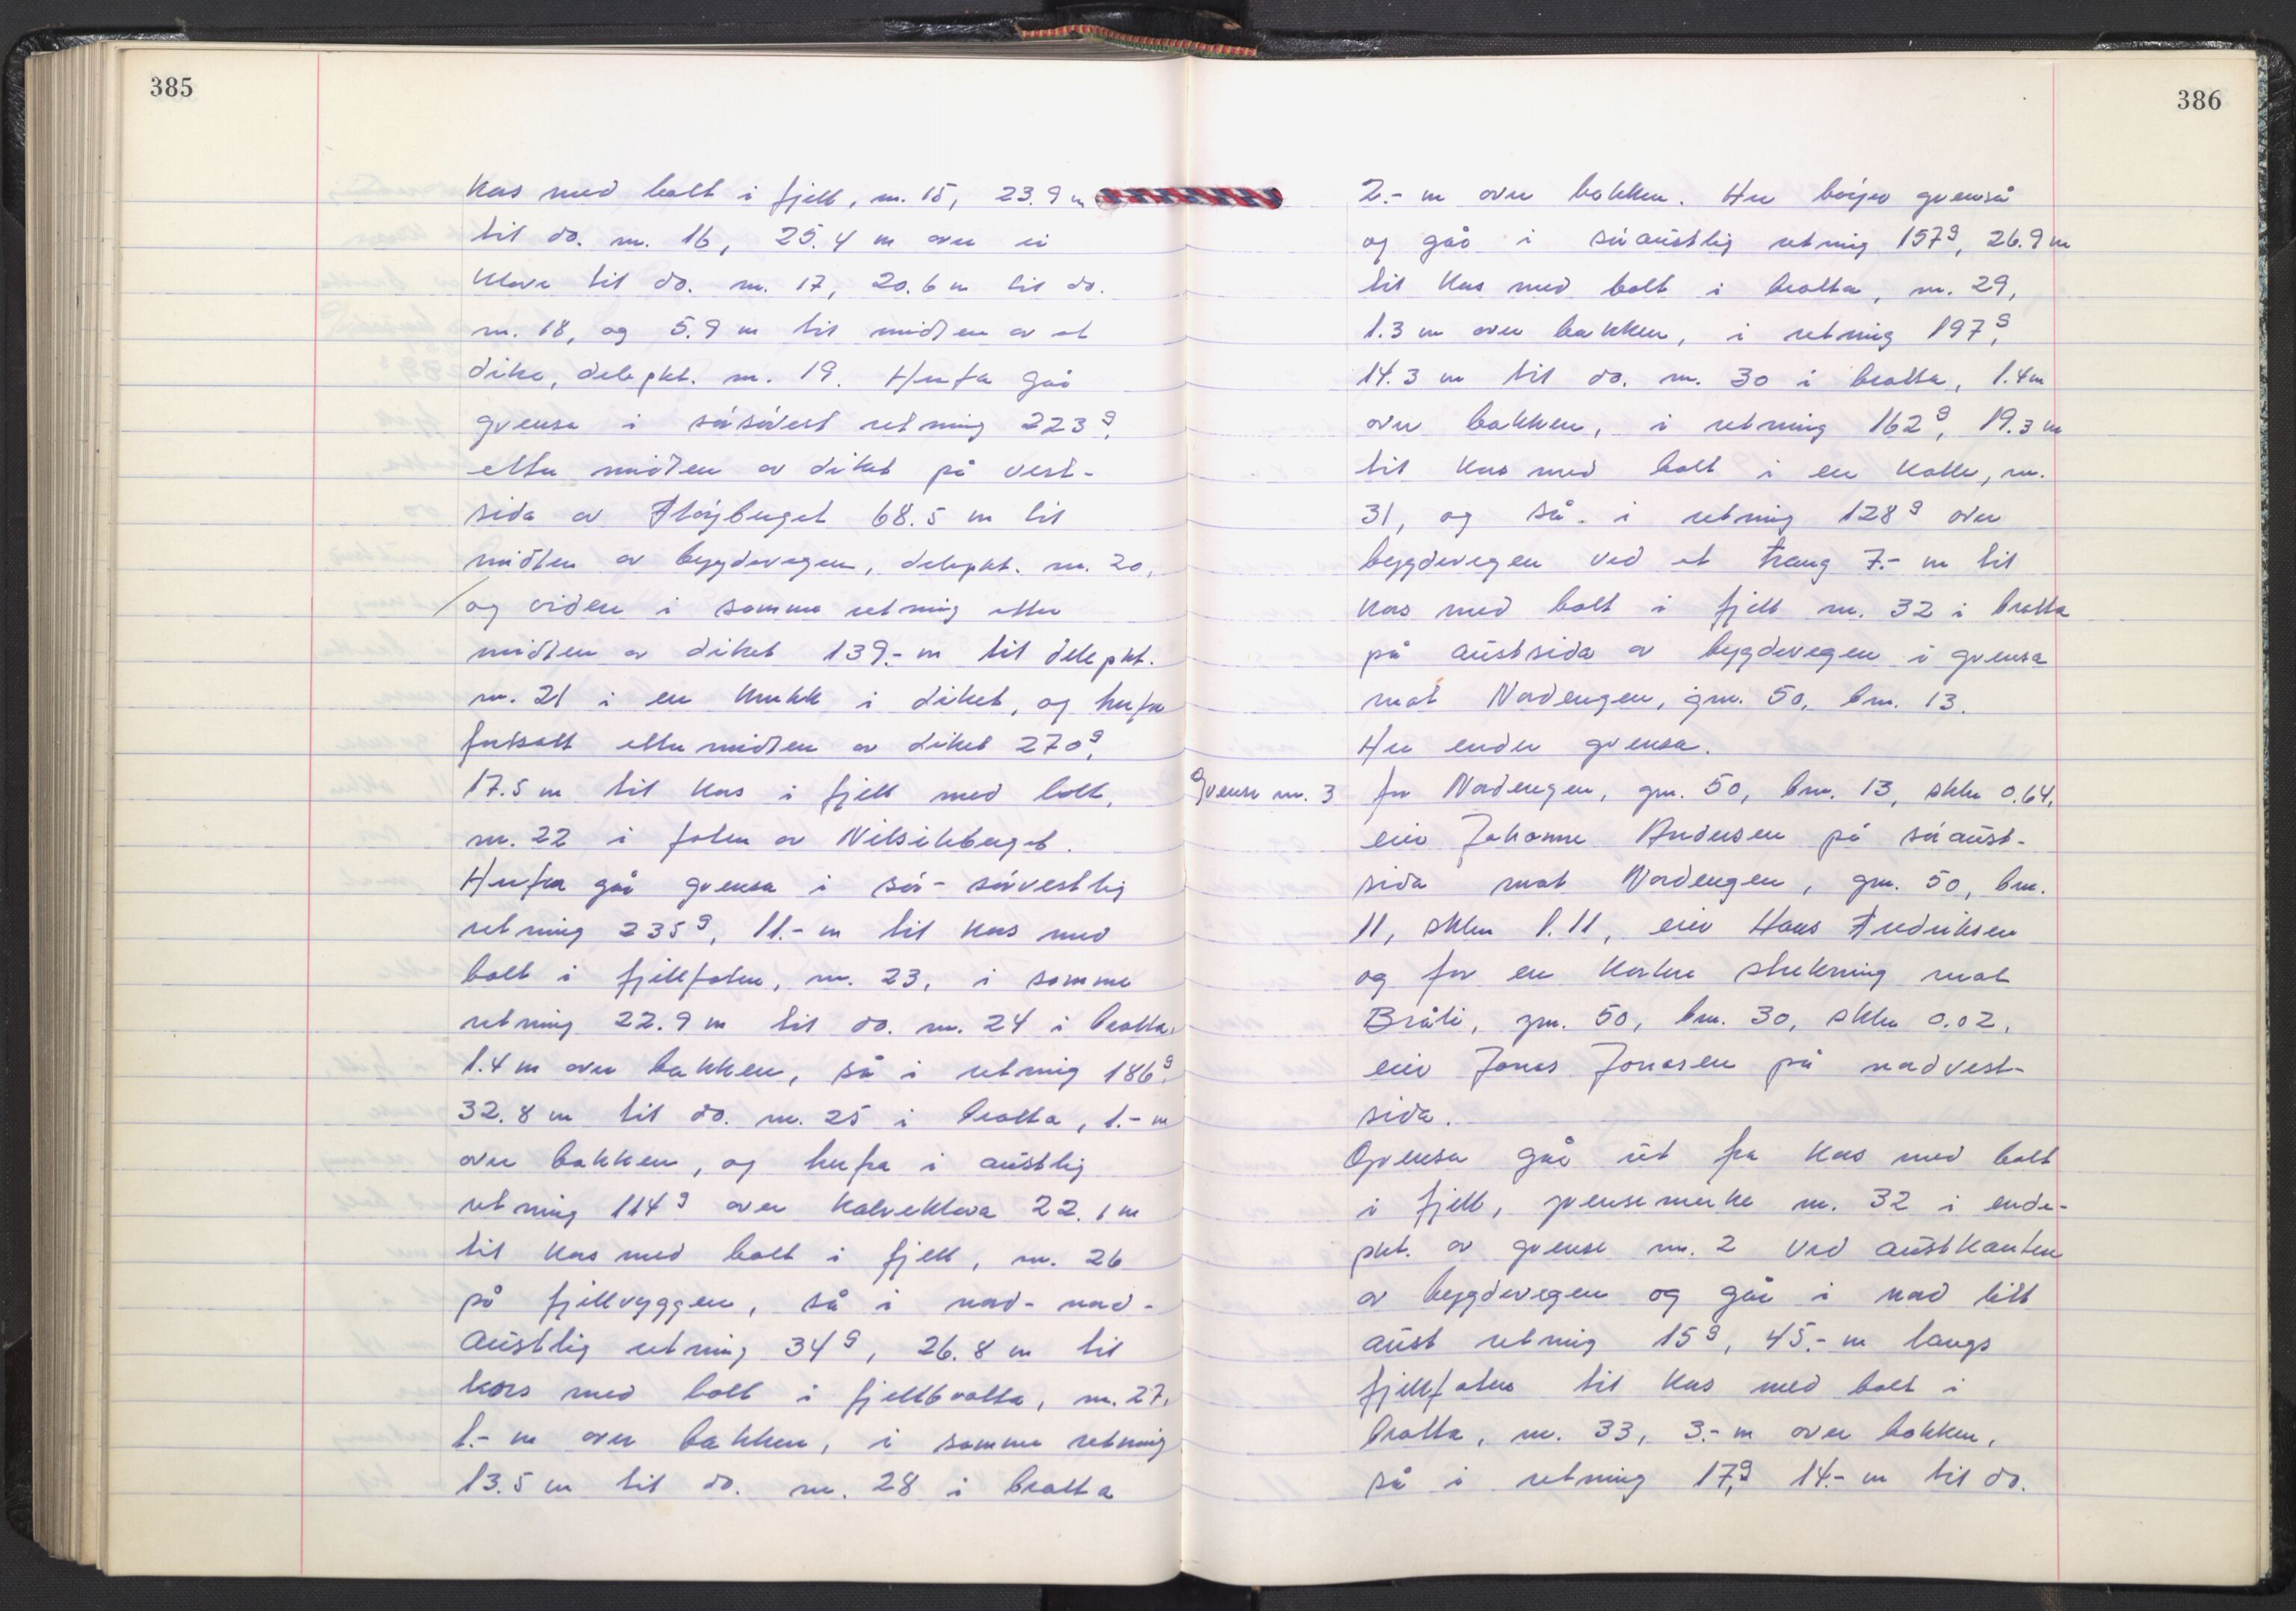 385
kors med bolt i fjell, nr. 15, 23.9 m
til do. nr. 16, 25.4 m over ei
kløve til do. nr. 17, 20.6 m til do.
nr. 18, og 5.9 m til midten av et
dike, delepkt. nr. 19. Herfra går
grensa i sørsørvest retning 223g,
etter midten av diket på vest-
sida av Fløyberget 68.5 m til
midten av bygdevegen, delepkt. nr. 20,
og videre i samme retning etter
midten av diket 139.- m til delepkt.
nr. 21 i en knekk i diket, og herfra
fortsatt etter midten av diket 270g,
17.5 m til kors i fjell med bolt,
nr. 22 i foten av Nilsikberget.
Herfra går grensa i sør-sørvestlig
retning 235g, 11.- m til kors med
bolt i fjellfoten, nr. 23, i samme
retning 22.9 m til do. nr. 24 i bratta,
1.4 m over bakken, så i retning 186g,
32.8 m til do. nr. 25 i bratta, 1.- m
over bakken, og herfra i austlig
retning 114g over Kalvekløva 22.1 m
til kors med bolt i fjell, nr. 26
på fjellryggen, så i nord-nord-
austlig retning 34g, 26.8 m til
kors med bolt i fjellbratta, nr. 27,
1.- m over bakken, i samme retning
13.5 m til do. nr. 28 i bratta
386
2.- m over bakken. Her bøyer grensa
og går i søraustlig retning 157g, 26.9 m
til kors med bolt i bratta, nr. 29,
1.3 m over bakken, i retning 197g,
14.3 m til do. nr. 30 i bratta, 1.4 m
over bakken, i retning 162g, 19.3 m
til kors med bolt i en kolle, nr.
31, og så i retning 128g over
bygdevegen ved et trang 7.- m til
kors med bolt i fjell nr. 32 i bratta
på austsida av bygdevegen i grensa
mot Nordengen, gnr. 50, bnr. 13.
Her ender grensa.
Grense nr. 3 for Nordengen, gnr. 50, bnr. 13, skyld 0.64,
eier Johanne Andersen på søraust-
sida mot Nordengen, gnr. 50, bnr.
11, skyld 1.11, eier Hans Fredriksen
og for en kortere strekning mot
Bråti, gnr. 50, bnr. 30, skyld 0.02,
eier Jonas Jonasen på nordvest-
sida.
Grensa går ut fra kors med bolt
i fjell, grensemerke nr. 32 i ende-
pkt. av grense nr. 2 ved austkanten
av bygdevegen og går i nord litt
aust retning 15g, 45.- m langs
fjellfoten til kors med bolt i
bratta, nr. 33, 3.- m over bakken,
så i retning 17g, 14.- m til do.